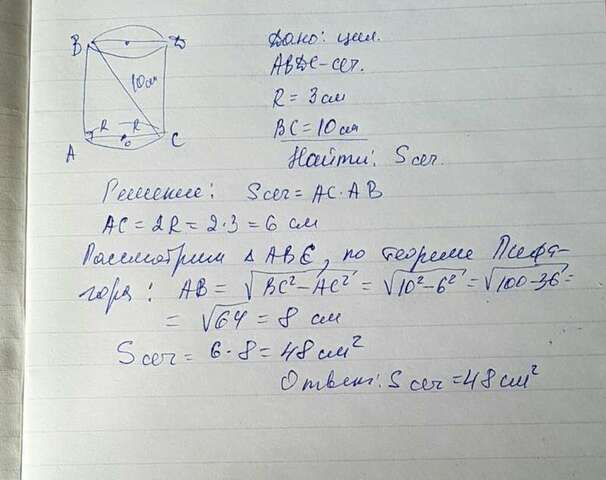 B D
10 см
R R
A O C
Дано: цил.
ABDC-сеч.
R = 3 см
BC = 10 см
Найти: Sсеч.
Решение: Sсеч = AC · AB
AC = 2R = 2·3 = 6 см
Рассмотрим △ ABC, по теореме Пифа-
гора: AB = √BC² - AC² = √10² - 6² = √100 - 36 =
= √64 = 8 см
Sсеч = 6 · 8 = 48 см²
Ответ: Sсеч = 48 см²